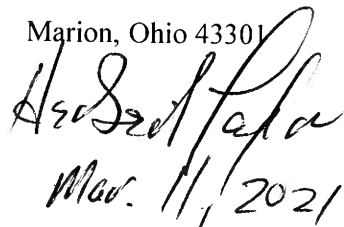 Marion, Ohio 43301
Mar. 11, 2021